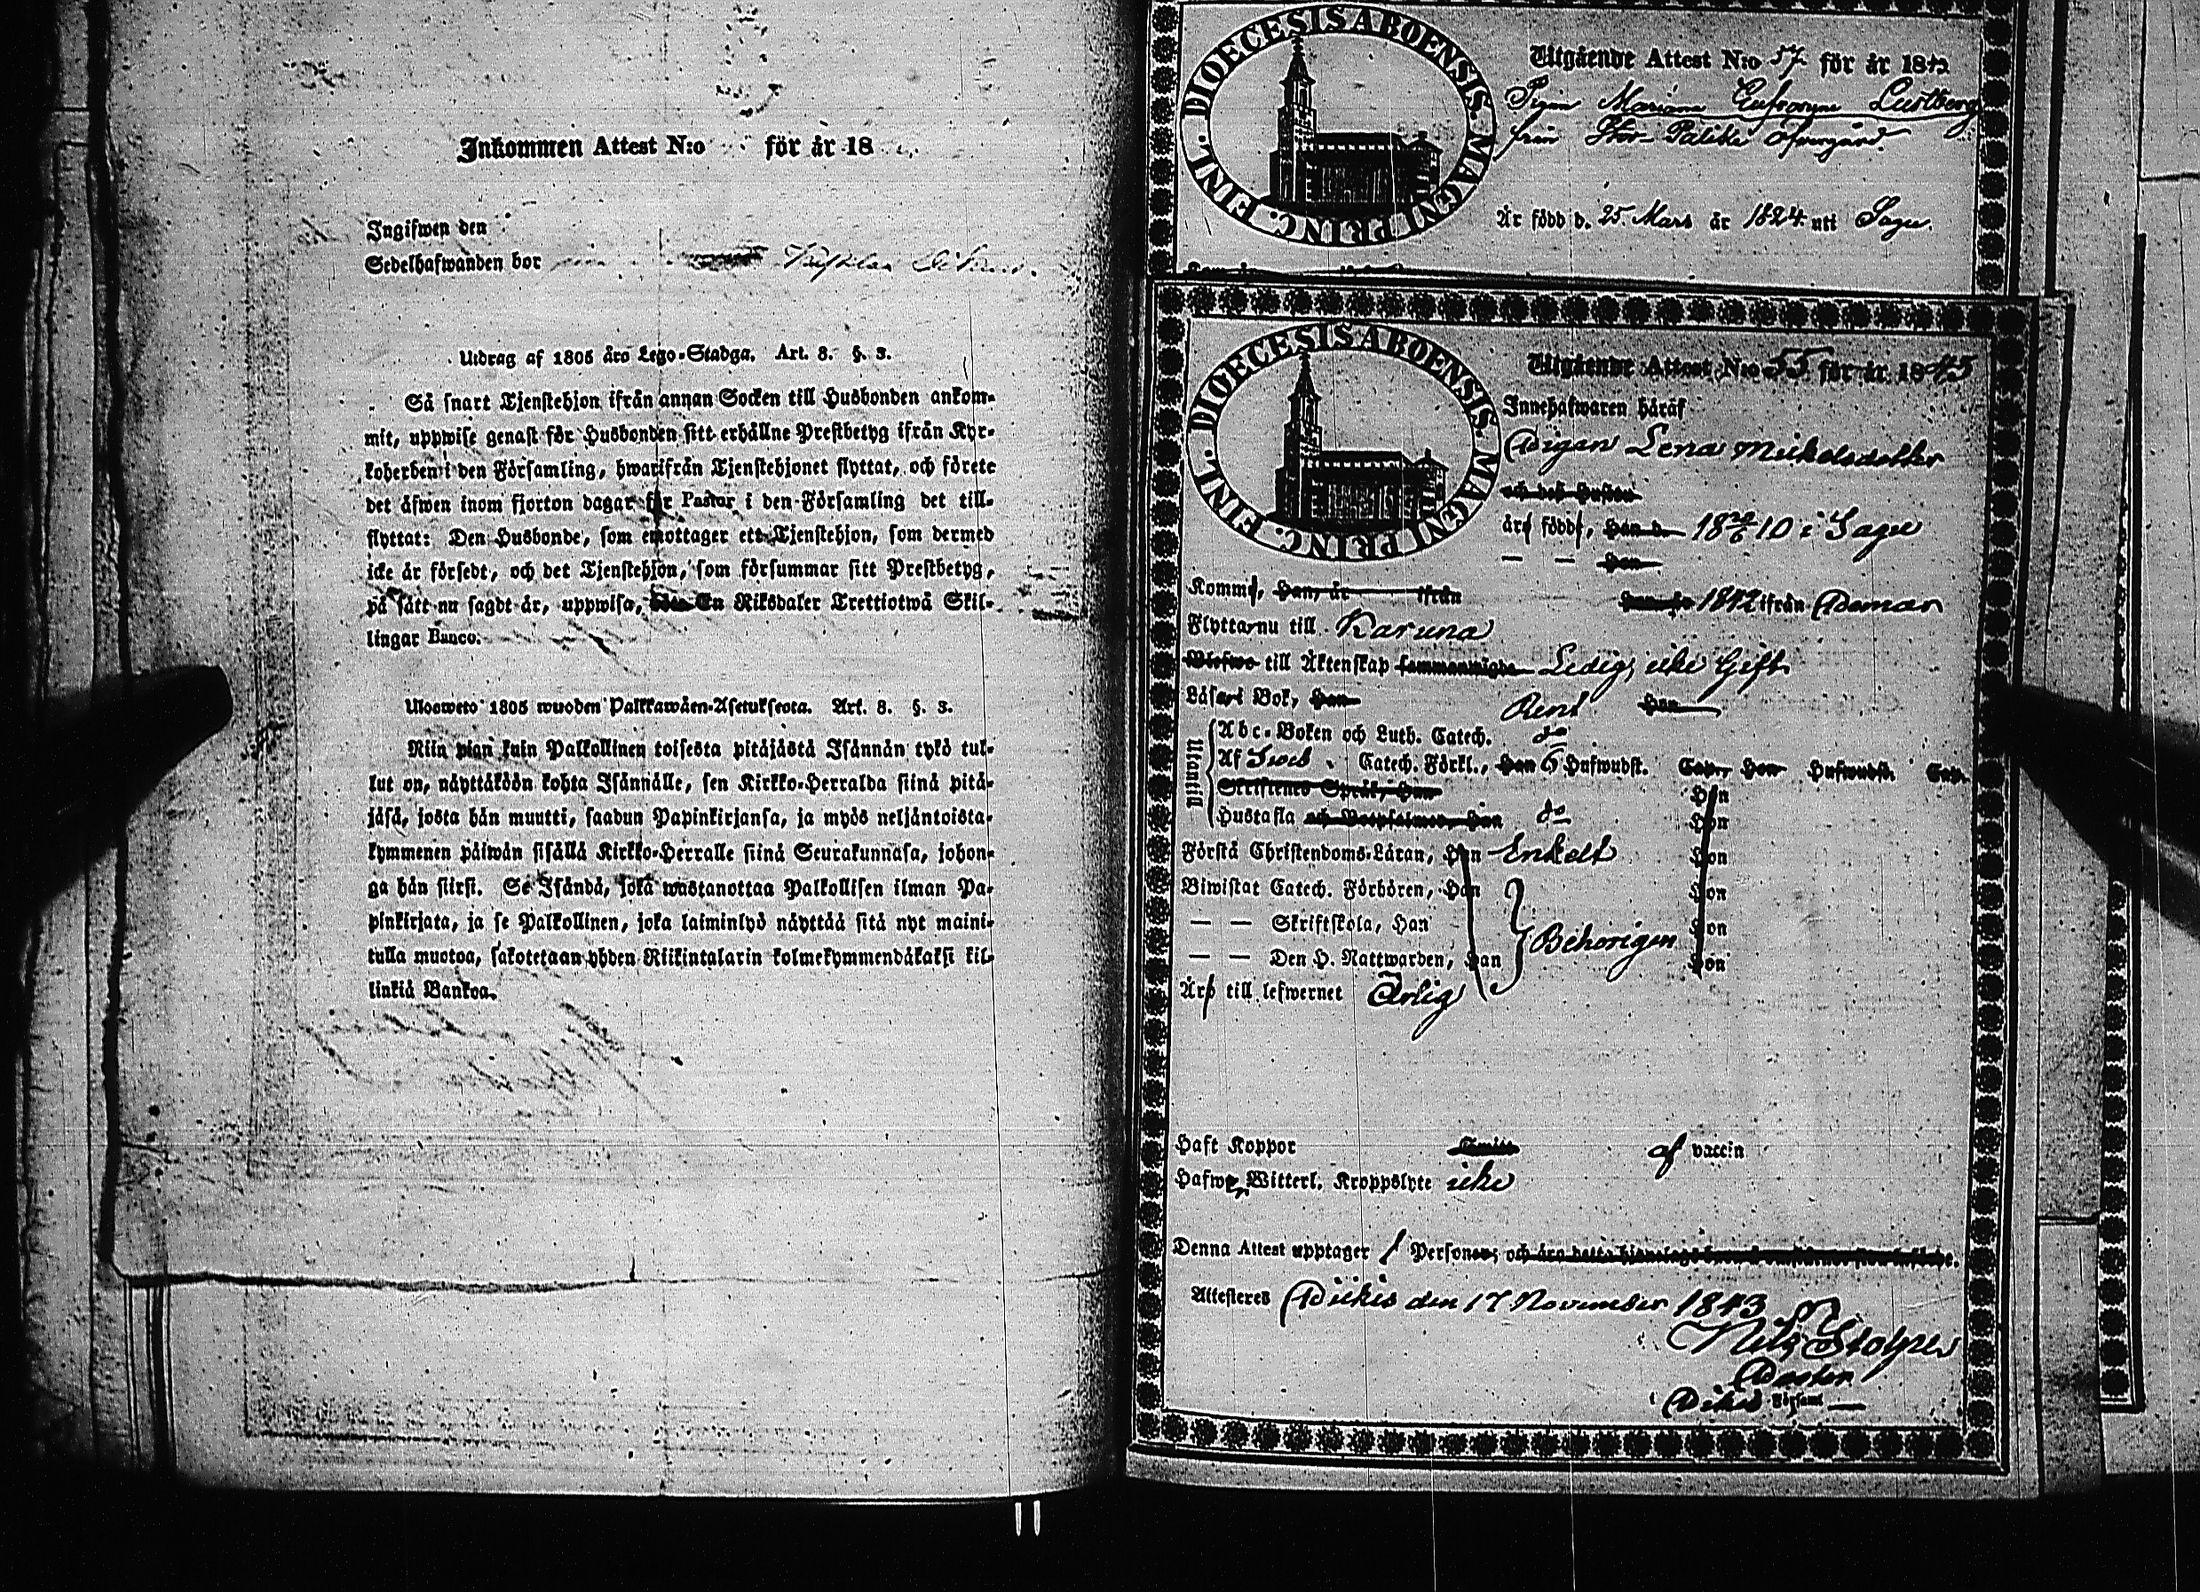 Inkommen Attest N:o för år 18
Ingifwen den
Sedelhafwanden bor
Utdrag af 1805 års Lego-Stadga. Art. 8. §. 3.
Så snart Tjenstehjon ifrån annan Socken till Husbonden ankom-
mit, uppwise genast för Husbonden sitt erhållne Prestbetyg ifrån Kyr-
koherden i den Församling, hwarifrån Tjenstehjonet flyttat, och förete
det äfwen inom fjorton dagar för Pastor i den Församling det till-
flyttat: Den Husbonde, som emottager ett Tjenstehjon, som dermed
icke är försedt, och det Tjenstehjon, som försummar sitt Prestbetyg,
på sätt nu sagdt är, uppwisa, böte En Riksdaler Trettiotwå Skil-
lingar Banco.
Ulosweto 1805 wuoden Palkkawäen-Asetuksesta. Art. 8. §. 3.
Niin pian kuin Palkollinen toisesta pitäjästä Isännän tykö tul-
lut on, näyttäköön kohta Isännälle, sen Kirkko-Herralda siinä pitä-
jäsä, josta hän muutti, saadun Papinkirjansa, ja myös neljäntoista-
kymmenen päiwän sisällä Kirkko-Herralle siinä Seurakunnasa, johon-
ga hän siirsi. Se Isändä, joka wastanottaa Palkollisen ilman Pa-
pinkirjata, ja se Palkollinen, joka laiminlyö näyttää sitä nyt maini-
tulla muotoa, sakotetaan yhden Riikintalarin kolmekymmendäkaksi kil-
linkiä Bankoa.
FINL. DIOECESIS ABOENSIS. MAGNI PRINC.
Utgående Attest N:o 57 för år 18
Pigan Mariana Eufrosyne Lustberg
från Stor-Palike
Är född d. 25 Mars år 1824 uti Sagu.
FINL. DIOECESIS ABOENSIS. MAGNI PRINC.
Utgående Attest N:o 55 för år 1843
Innehafwaren häraf
Pigan Lena Mickelsdotter
och deß Hustru
äro födde, Han d. 18 10 i Sagu
— — Hon
Komme, Han, år ifrån 1842 ifrån Pemar
Flyttar nu till Karuna
till Äktenskap Ledig, icke Gift.
Läsa i Bok, Han Rent Hon
Utantill
Abc-Boken och Luth. Catech. do
Af Sweb. Catech. Förkl., Han 6 Hufwudst. Cap. Hon Hufwudst. Cap.
Skriftenes Språk, Han Hon
Hustafla do Hon
Förstå Christendoms-Läran, Han Enkelt Hon
Biwistat Catech. Förhören, Han Hon
— — Skriftskola, Han Behörigen Hon
— — Den H. Nattwarden, Han Hon
Äro till lefwernet Ärlig
Haft Koppor af vaccin
Hafwer Witterl. Kroppslyte icke
Denna Attest upptager 1 Personer,
Attesteres Piikis den 17 November 1843
Nils Stolpe
Pastor
Pikis Förssaml